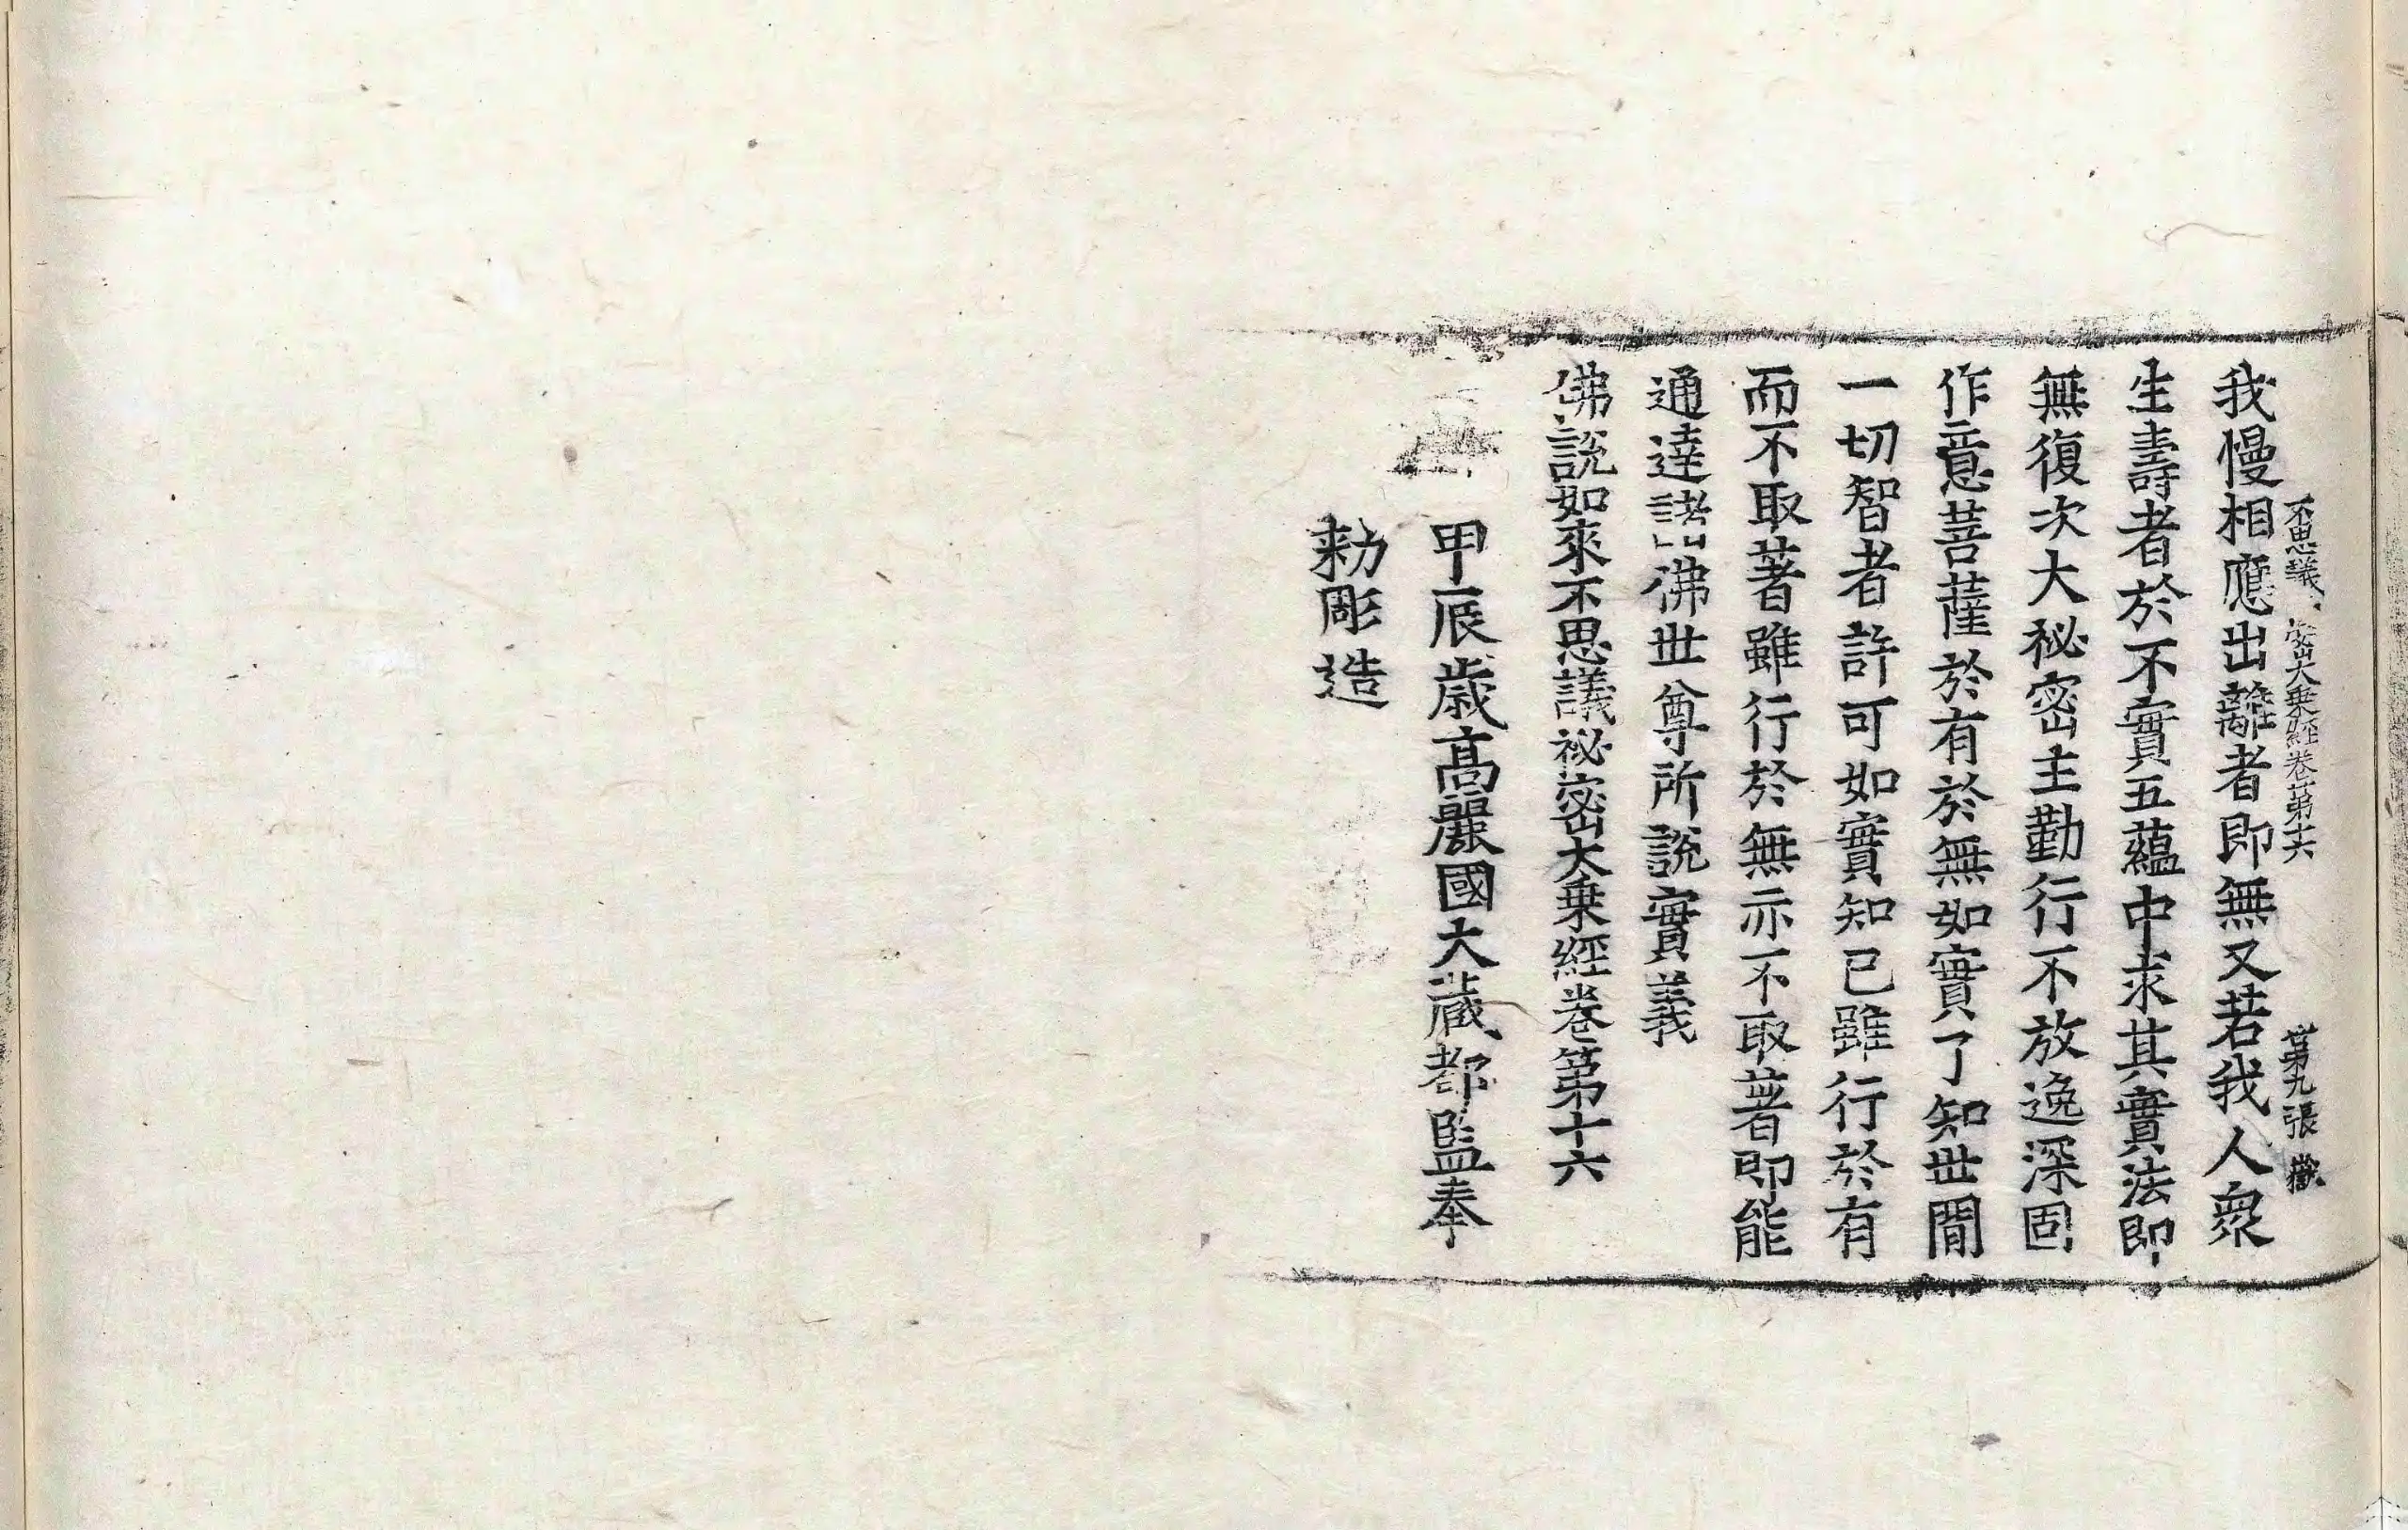 不思議密大乗經卷第十六 第九張 歡
我慢相應出離者即無又若我人衆
生壽者於不實五蘊中求其實法即
無復次大秘密主勤行不放逸深固
作意菩薩於有於無如實了知世間
一切智者許可如實知已雖行於有
而不取著雖行於無亦不取著即能
通達諸佛世尊所說實義
佛說如來不思議祕密大乗經卷第十六
甲辰歳高麗國大藏都監奉
勑彫造